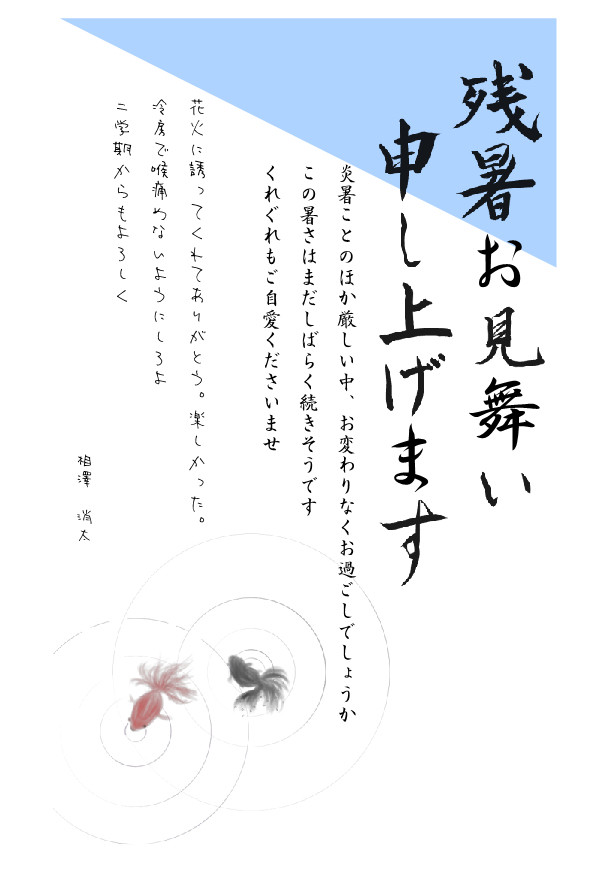 残暑お見舞い
申し上げます
炎暑ことのほか厳しい中、お変わりなくお過ごしでしょうか
この暑さはまだしばらく続きそうです
くれぐれもご自愛くださいませ
花火に誘ってくれてありがとう。楽しかった。
冷房で喉痛めないようにしろよ
二学期からもよろしく
相澤 消太